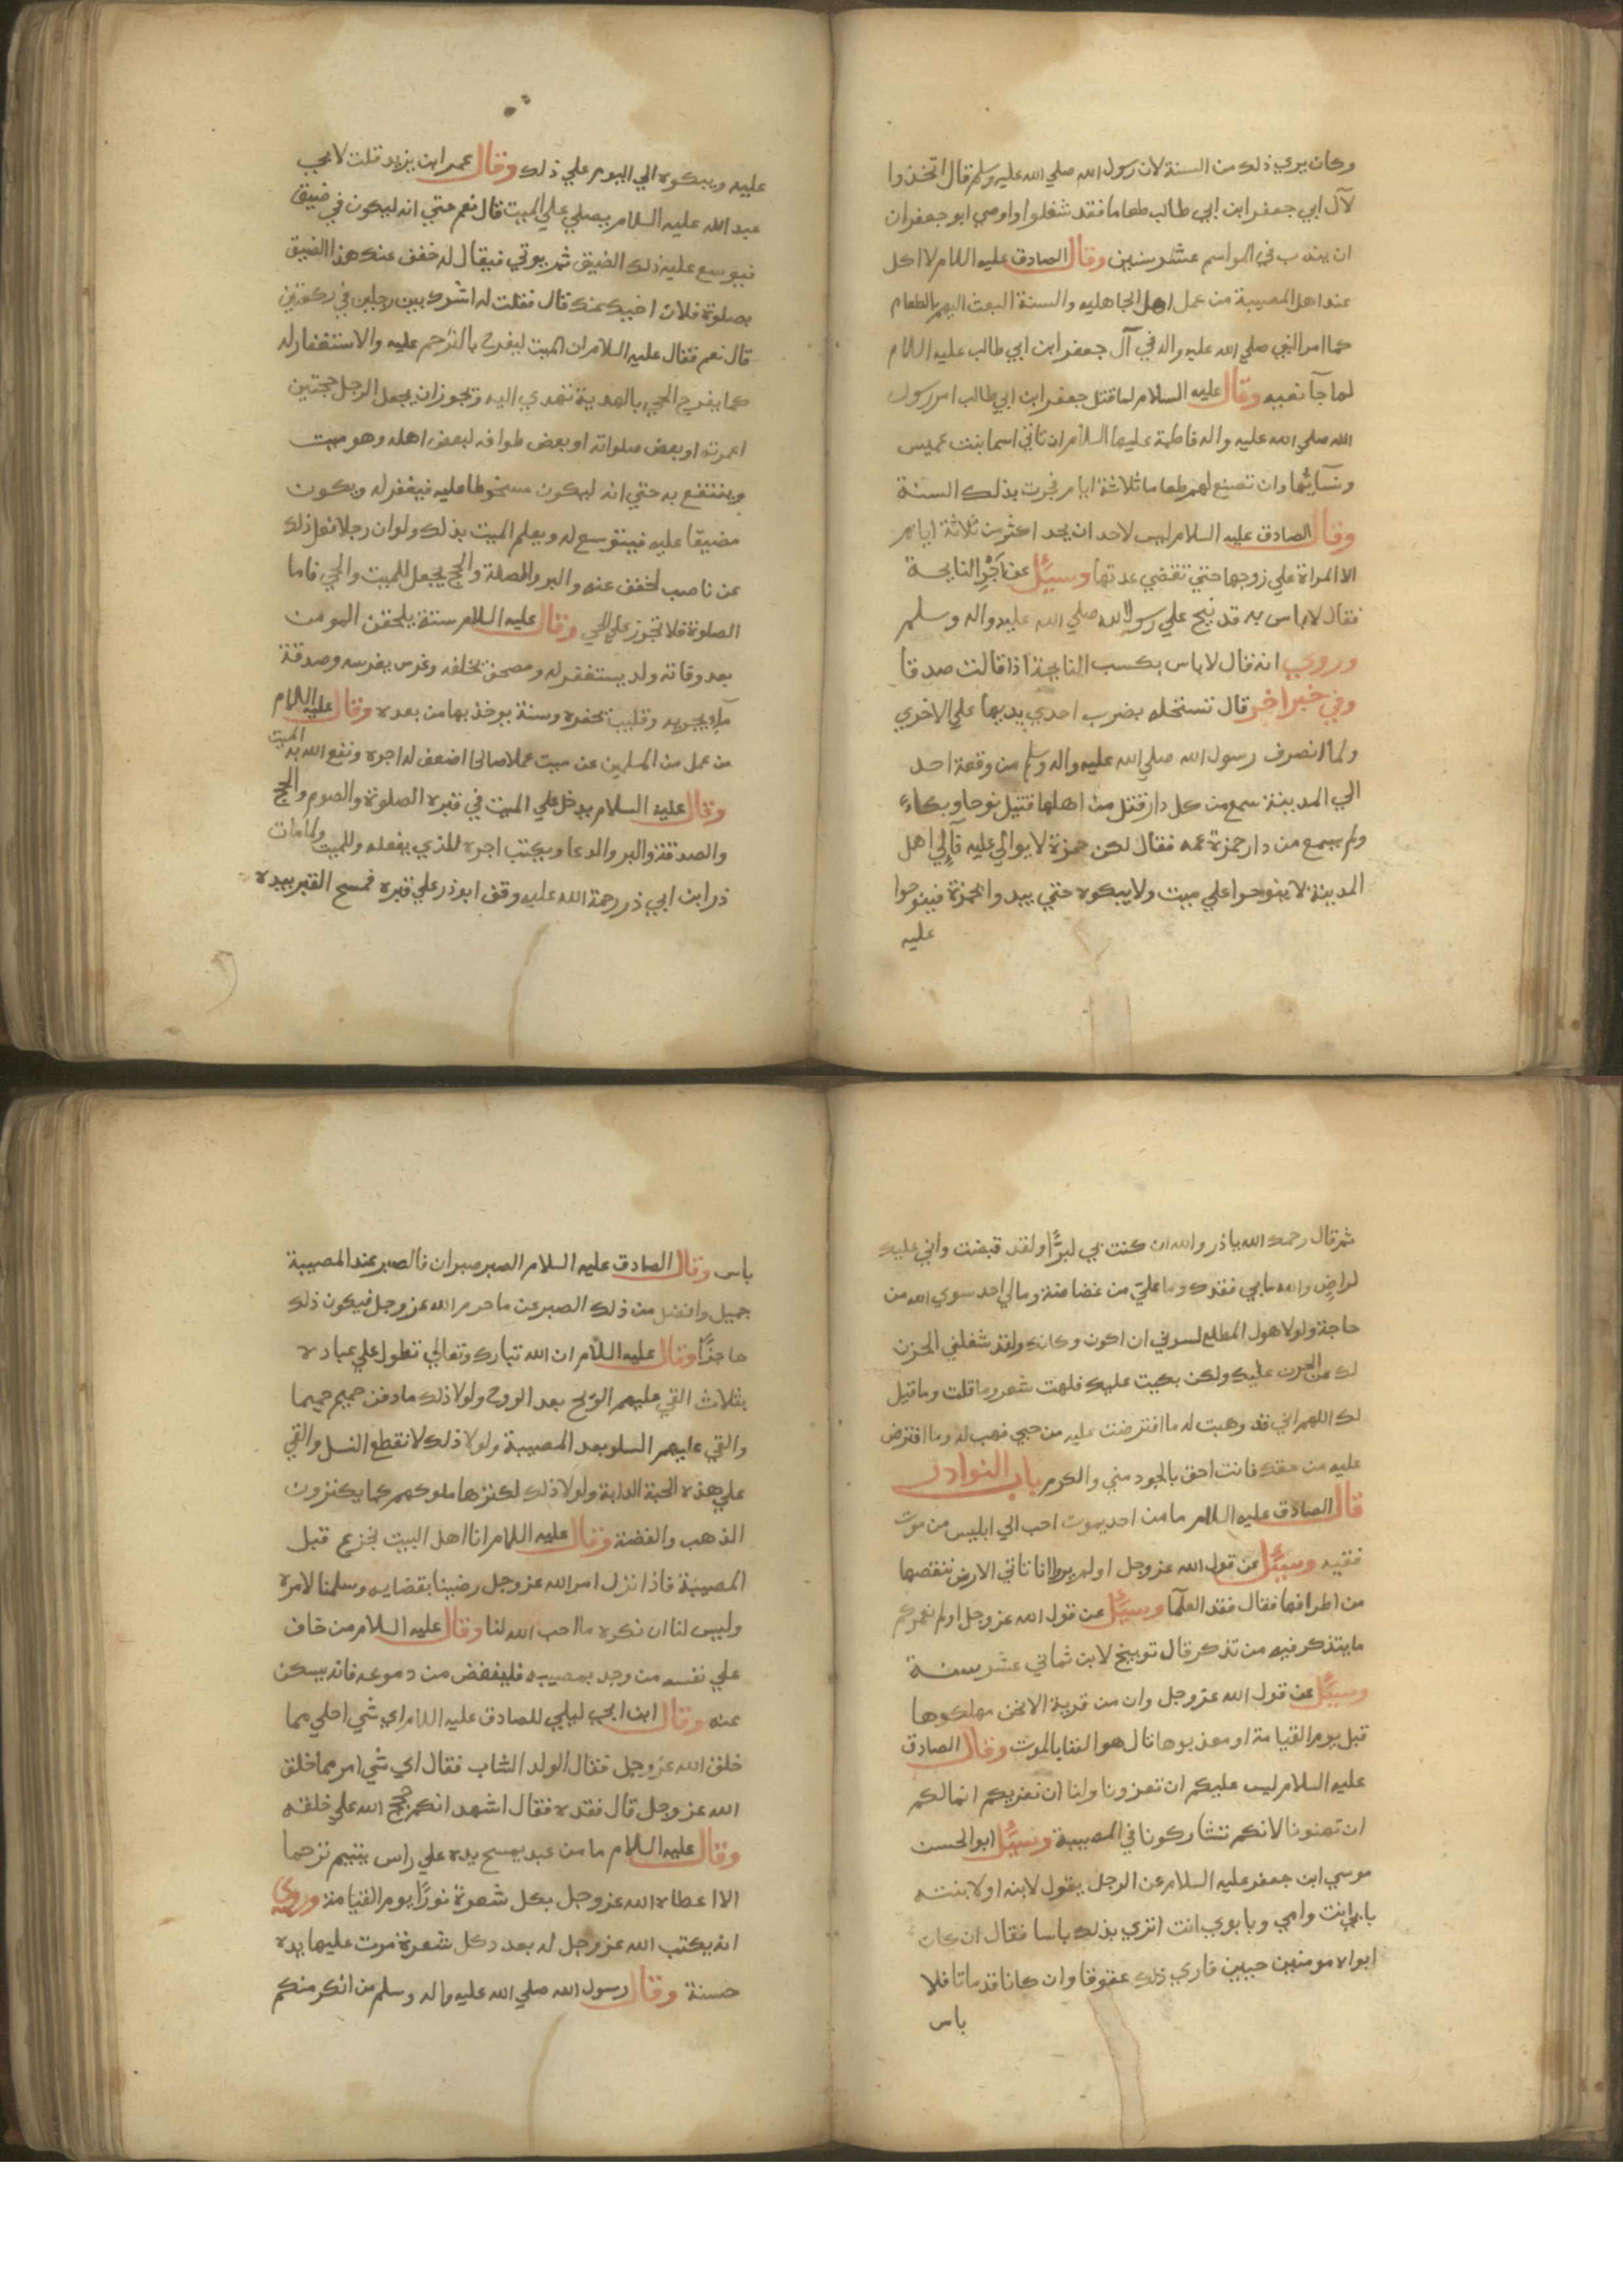 وكان يري ذلك من السنة لان رسول الله صلي الله عليه وسلم قال اتخذوا
لآل ابي جعفر ابن ابي طالب طعاما فقد شغلوا واوصي ابو جعفر ان
ان يندب في المواسم عشر سنين وقال الصادق عليه اللام لا اكل
عند اهل المصيبة من عمل اهل الجاهليه والسنة البعث اليهم بالطعام
كما امر النبي صلي الله عليه واله في آل جعفر ابن ابي طالب عليه اللام
لما جآ نعيه وقال عليه السلام لما قتل جعفر ابن ابي طالب امر رسول
الله صلي الله عليه واله فاطمة عليها السلام ان تاتي اسما بنت عميس
ونسآئها وان تصنع لهم طعاما ثلاثة ايام فجرت بذلك السنة
وقال الصادق عليه السلام ليس لاحد ان يحد اكثر من ثلاثة ايام
الا المراة علي زوجها حتي تقضي عدتها وسيئل عن اَجْرِ النايحة
فقال لا باس به قد نيح علي رسول الله صلي الله عليه واله وسلم
وروي انه قال لا باس بكسب النايحة اذا قالت صدقا
وفي خبر اخر قال تستحله بضرب احدي يديها علي الاخري
ولما انصرف رسول الله صلي الله عليه واله وسلم من وقعة احد
الي المدينة سمع من كل دار قتل من اهلها قتيل نوحا وبكاء
ولم يسمع من دار حمزة عمه فقال لكن حمزة لا بواكي عليه فآلي اهل
المدينة لا ينوحوا علي ميت ولا يبكوه حتي يبدوا بحمزة فينوحوا
عليه
عليه ويبكوه الي اليوم علي ذلك وقال عمر ابن يزيد قلت لابي
عبد الله عليه السلام يصلي علي الميت قال نعم حتي انه ليكون في ضيق
فيوسع عليه ذلك الضيق ثم يوتي فيقال له خفف عنك هذا الضيق
بصلوة فلان اخيك عنك قال فقلت له اشرك بين رجلين في ركعتين
قال نعم فقال عليه السلام ان الميت ليفرح بالترحم عليه والاستغفار له
كما يفرح الحي بالهدية تهدي اليه ويجوز ان يجعل الرجل حجتين
اعمرته او بعض صلواته او بعض طوافه لبعض اهله وهو ميت
وينتفع به حتي انه ليكون مسخوطا عليه فيغفر له ويكون
مضيقا عليه فيتوسع له ويعلم الميت بذلك ولو ان رجلا فعل ذلك
عن ناصب لخفف عنه والبر والصلة والحج يجعل للميت والحي فاما
الصلوة فلا تجوز علي الحي وقال عليه السلام ستة يلحقن المومن
بعد وفاته ولد يستغفر له ومصحف يخلفه وغرس يغرسه وصدقة
مآء يجريه وقليب يحفره وسنة يوخذ بها من بعده وقال عليه اللام
من عمل من المسلمين عن ميت عملا صالحا اضعف له اجره ونفع الله به الميت
وقال عليه السلام يدخل علي الميت في قبره الصلوة والصوم والحج
والصدقة والبر والدعا ويكتب اجره للذي يفعله وللميت ولما مات
ذر ابن ابي ذر رحمة الله عليه وقف ابو ذر علي قبره فمسح القبر بيده
ثم قال رحمك الله يا ذر والله ان كنت بي لبرًّا ولقد قبضت واني عليك
لراضٍ والله ما بي فقدك وما عليّ من غضاضة ومالي احد سوي الله من
حاجة ولولا هول المطلع لسرني ان اكون وكانك ولقد شغلني الحزن
لك عن الحزن عليك ولكن بكيت عليك فلهت شعر وما قلت وما قيل
لك اللهم اني قد وهبت له ما افترضت عليه من حبي فهب له وما افترض
عليه من حقك فانت احق بالجود مني والكرم باب النوادر
قال الصادق عليه اللام ما من احد يموت احب الي ابليس من موت
فقيه وسيئل عن قول الله عز وجل اولم يروا انا ناتي الارض ننقصها
من اطرافها فقال فقد العلمآ وسيئل عن قول الله عز وجل اولم نعمركم
ما يتذكر فيه من تذكر قال توبيخ لابن ثماني عشر سنة
وسيئل عن قول الله عز وجل وان من قرية الا نحن مهلكوها
قبل يوم القيامة او معذبوها قال هو الفنا بالموت وقال الصادق
عليه السلام ليس عليكم ان تعزونا ولنا ان نعزيكم انما لكم
ان تهنونا لانكم تشاركونا في المصيبة وسيئل ابو الحسن
موسي ابن جعفر عليه السلام عن الرجل يقول لابنه او لابنته
بابي انت وامي وبابوي انت اتري بذلك باسا فقال ان كان
ابواه مومنين حيين فاري ذلك عقوقا وان كانا قد ماتا فلا
باس
باس وقال الصادق عليه السلام الصبر صبران فالصبر عند المصيبة
جميل وافضل من ذلك الصبر عن ما حرم الله عز وجل فيكون ذلك
حاجزًا وقال عليه اللام ان الله تبارك وتعالي تطول علي عباده
بثلاث القي عليهم الريح بعد الروح ولولا ذلك ما دفن حميم حميما
والقي عليهم السلو بعد المصيبة ولولا ذلك لانقطع النسل والقي
علي هذه الحبة الدابة ولولا ذلك لكنزها ملوكهم كما يكنزون
الذهب والفضة وقال عليه اللام انا اهل البيت نجزعم قبل
المصيبة فاذا نزل امر الله عز وجل رضينا بقضايه وسلمنا لامره
وليس لنا ان نكره ما احب الله لنا وقال عليه السلام من خاف
علي نفسه من وجد بمصيبه فليفضض من دموعه فانه يسكن
عنه وقال ابن ابي ليلي للصادق عليه اللام اي شي احلي مما
خلق الله عز وجل فقال الولد الشاب فقال اي شي امر مما خلق
الله عز وجل قال فقده فقال اشهد انكم حجج الله علي خلقه
وقال عليه اللام ما من عبد يمسح يده علي راس يتيم ترحما
الا اعطاه الله عز وجل بكل شعرة نورًا يوم القيامة وروي
انه يكتب الله عز وجل له بعد دكل شعرة مرت عليها يده
حسنة وقال رسول الله صلي الله عليه واله وسلم من انكر منكم